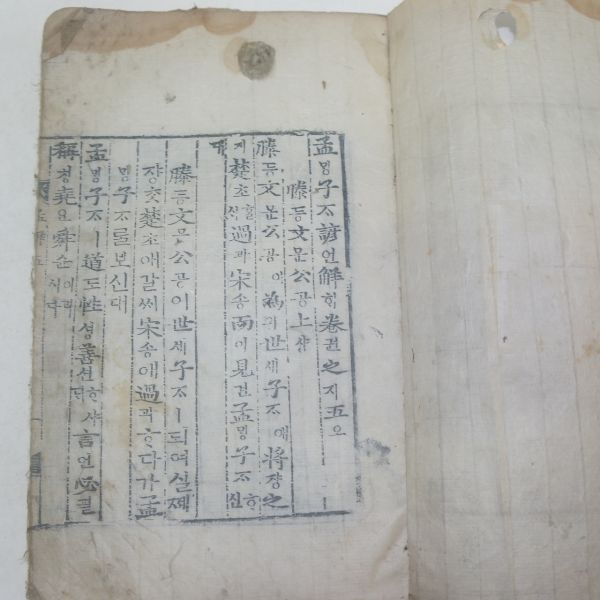 孟밍子ᄌᆞ諺언解ᄒᆡ卷권之지五오
滕등文문公공上샹
滕등文문公공이爲위世셰子ᄌᆞ애將쟝之
지楚초ᄒᆞᆯᄉᆡ過과宋송而이見견孟ᄆᆡᆼ子ᄌᆞᄒᆞ신
대
滕등文문公공이世셰子ᄌᆞㅣ되여실제
쟝ᄎᆞᆺ楚초애갈ᄉᆡ宋송애過과ᄒᆞ다가孟
ᄆᆡᆼ子ᄌᆞᄅᆞᆯ보신대
孟ᄆᆡᆼ子ᄌᆞㅣ道도性셩善션ᄒᆞ샤ᄃᆡ言언必필
稱칭堯요舜슌이러시다